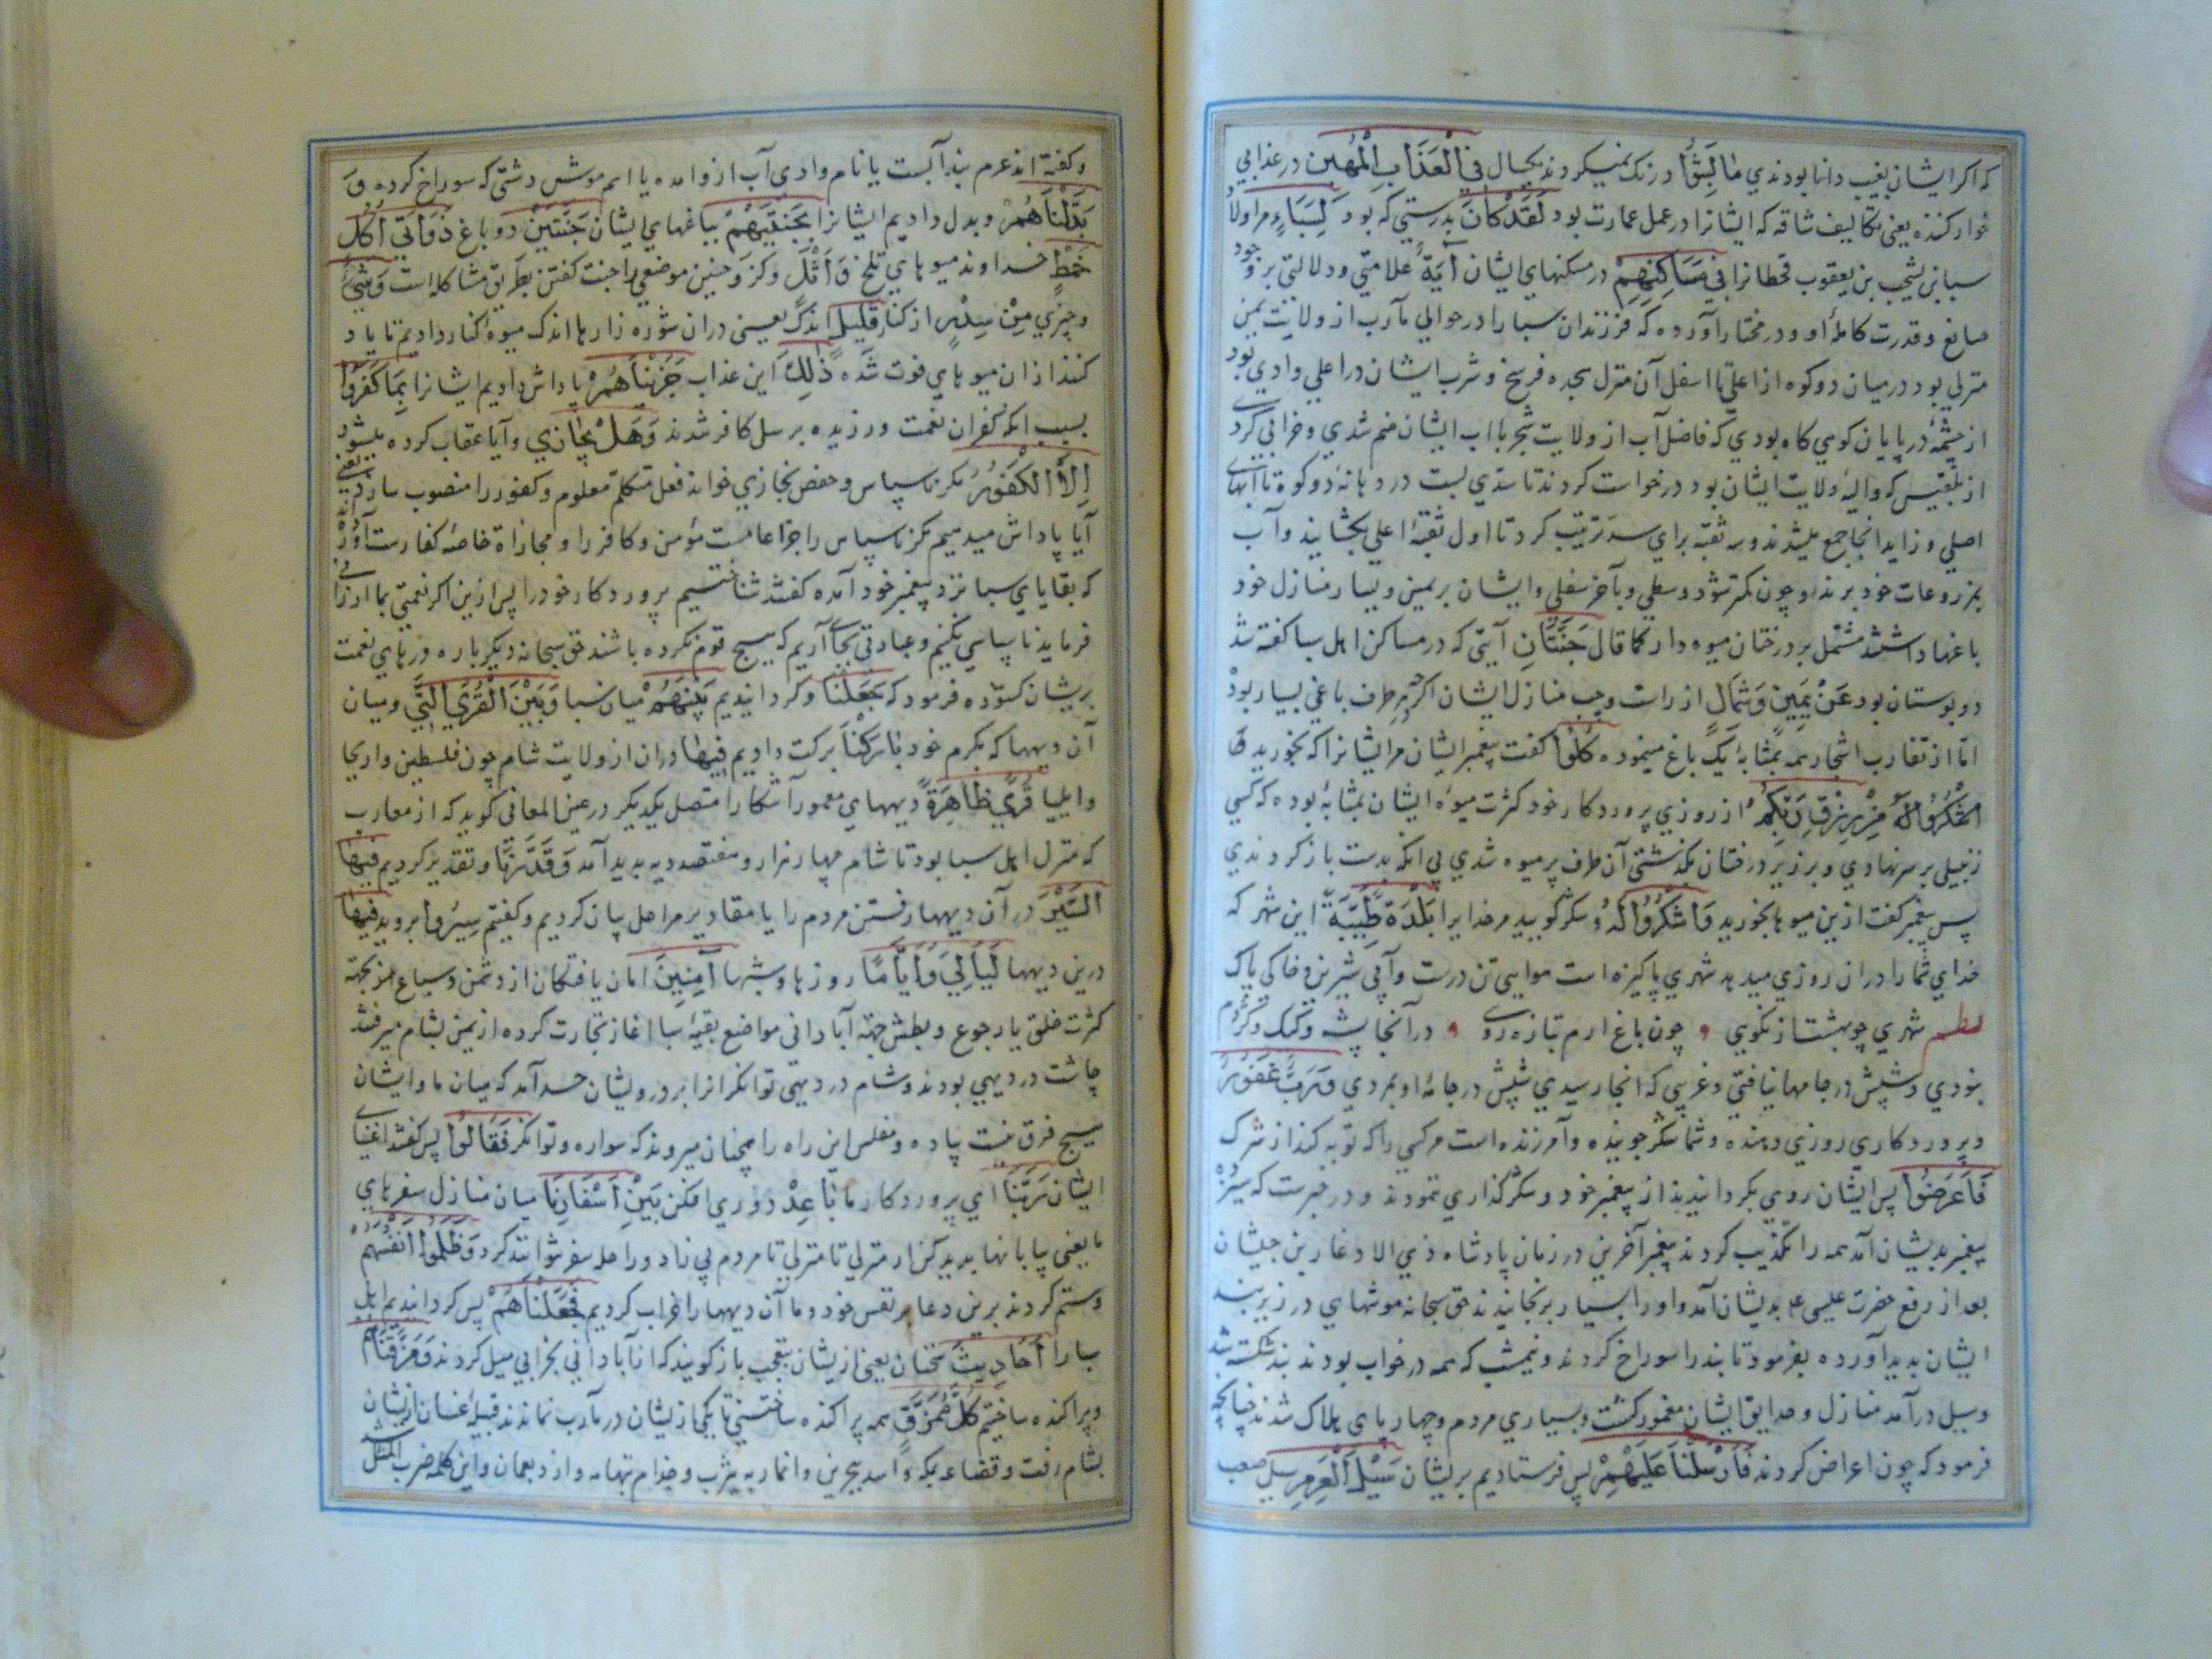 که اگر ایشان بغیب دانا بودندی مَا لَبِثُوا درنک نمیکردند یکسال فِي الْعَذَابِ الْمُهِينِ در عذابی
خوار کننده یعنی تکالیف شاقه که ایشانرا در عمل عمارت بود لَقَدْ كَانَ بدرستی که بود لِسَبَاءٍ مر اولاد
سبا بن یشجب بن یعرب قحطانرا فِي مَسَاكِنِهِمْ در مسکنهای ایشان آيَةٌ علامتی و دلالتی بر وجود
صانع و قدرت کاملهٔ او و در مختار آورده که فرزندان سبا را در حوالی مآرب از ولایت یمن
منزلی بود در میان دو کوه از اعلی تا اسفل آن منزل هجده فرسخ و شرب ایشان در اعلی وادی بود
از چشمهٔ در پایان کوهی کاه بودی که فاضل آب از ولایت شجر باب ایشان منضم شدی و خرابی کردی
از بلقیس که والیهٔ ولایت ایشان بود درخواست کردند تا سدی بست در دهانهٔ دو کوه تا آبهای
اصلی و زاید انجا جمع میشدند و سه ثقبه برای سد ترتیب کرد تا اول ثقبهٔ اعلی بکشایند و آب
بمزروعات خود برند و چون کمتر شود وسطی و بآخر سفلی و ایشان بر یمین و یسار منازل خود
باغها داشتند مشتمل بر درختان میوه دار کما قال جَنَّتَانِ آیتی که در مساکن اهل سبا کفته شد
دو بوستان بود عَنْ يَمِينٍ وَشِمَالٍ از راست و چپ منازل ایشان اکرچه بر هر طرف باغی بسیار بود
اما از تقارب اشجار همه بمثابهٔ یک باغ مینموده كُلُوا کفت پیغمبر ایشان مر ایشانرا که بخورید
مِنْ رِزْقِ رَبِّكُمْ از روزی پروردکار خود کثرت میوهٔ ایشان بمثابهٔ بوده که کسی
زنبیلی بر سر نهادی و بر زیر درختان بکذشتی آن ظرف پر میوه شدی بی انکه بدست باز کردندی
پس پیغمبر کفت ازین میوها بخورید وَاشْكُرُوا لَهُ و شکر کویید مر خدایرا بَلْدَةٌ طَيِّبَةٌ این شهر که
خدای شما را دران روزی میدهد شهری پاکیزه است هوایی تن درست و آبی شیرین و خاکی پاک
نظم شهری چو بهشت از نکویی چون باغ ارم بتازه رویی در آنجا پشه و کیک و کژدم
نبودی و شپش در جامها نیافتی و غریبی که انجا رسیدی شپش در جامهٔ او بمردی وَرَبٌّ غَفُورٌ
و پروردکاری روزی دهنده و شما شکر جوینده و آمرزنده است مر کسی را که توبه کند از شرک
فَأَعْرَضُوا پس ایشان روی بکردانیدند از پیغمبر خود و شکر گذاری ننمودند و در خبرست که سیزده
پیغمبر بدیشان آمد همه را تکذیب کردند پیغمبر آخرین در زمان پادشاه ذی الاذعار بن جیشان
بعد از رفع حضرت عیسی ع بدیشان آمد و او را بسیار برنجانیدند حق سبحانه موشهایی در زیر بند
ایشان پدید آورده بفرمود تا بند را سوراخ کردند و نیمشب که همه در خواب بودند بند شکسته شد
و سیل درآمد منازل و حدایق ایشان مغمور کشت و بسیاری مردم و چهارپای هلاک شدند چنانچه
فرمود که چون اعراض کردند فَأَرْسَلْنَا عَلَيْهِمْ پس فرستادیم بریشان سَيْلَ الْعَرِمِ سیل صعب
و کفته اند عرم بند آبست یا نام وادی آب ازو آمده یا اسم موش دشتی که سوراخ کرده وَ
بَدَّلْنَاهُمْ و بدل دادیم ایشانرا بِجَنَّتَيْهِمْ بباغهای ایشان جَنَّتَيْنِ دو باغ ذَوَاتَيْ أُكُلٍ
خَمْطٍ خداوند میوهای تلخ وَأَثْلٍ و کز و چنین موضعی را جنت کفتن بطریق مشاکله است وَشَيْءٍ
و چیزی مِنْ سِدْرٍ از کنار قَلِيلٍ اندک یعنی دران شوره زارها اندک میوهٔ کنار دادیم تا یاد
کنند ازان میوهای فوت شده ذَلِكَ این عذاب جَزَيْنَاهُمْ پاداش دادیم ایشانرا بِمَا كَفَرُوا
بسبب انکه کفران نعمت ورزیده برسل کافر شدند وَهَلْ يُجَازَى و آیا عقاب کرده میشود
إِلَّا الْكَفُورَ مکر ناسپاس و حفص نجازی خواند فعل متکلم معلوم و کفور را منصوب سازد یعنی
آیا پاداش میدهیم مکر ناسپاس را جزا عامست مؤمن و کافر را و مجازاة خاصهٔ کفارست آورده‌اند
که بقایای سبا نزد پیغمبر خود آمده کفتند شناختیم پروردکار خود را پس ازین اکر نعمتی بما ارزانی
فرماید ناسپاسی نکنیم و عبادتی بجا آریم که هیچ قوم نکرده باشند حق سبحانه دیکر باره درهای نعمت
بریشان کشوده فرمود که وَجَعَلْنَا و کردانیدیم بَيْنَهُمْ میان سبا وَبَيْنَ الْقُرَى الَّتِي و میان
آن دیهها که بکرم خود بَارَكْنَا برکت دادیم فِيهَا دران از ولایت شام چون فلسطین و اریحا
و ایلیا قُرًى ظَاهِرَةً دیههای معمور آشکارا متصل یکدیکر در عین المعانی کوید که از مآرب
که منزل اهل سبا بود تا شام چهار هزار و هفتصد دیه پدید آمد وَقَدَّرْنَا و تقدیر کردیم فِيهَا
السَّيْرَ در آن دیهها رفتن مردم را یا مقادیر مراحل بیان کردیم و کفتیم سِيرُوا بروید فِيهَا
درین دیهها لَيَالِيَ وَأَيَّامًا روزها و شبها آمِنِينَ امان یافتکان از دشمن و سباع از بجهة
کثرت خلق یا رجوع و بطش جهة آبادانی مواضع بقیهٔ سبا اغاز تجارت کرده از یمن بشام میرفتند
چاشت در دیهی بودند و شام در دیهی توانکرانرا بر درویشان حسد آمد که میان ما و ایشان
هیچ فرق نیست پیاده و مفلس این راه را همچنان میروند که سواره و توانکر فَقَالُوا پس کفتند اغنیای
ایشان رَبَّنَا ای پروردکار ما بَاعِدْ دوری افکن بَيْنَ أَسْفَارِنَا میان منازل سفرهای
ما یعنی بیابانها پدید کن از منزلی تا منزلی تا مردم بی زاد و راحله سفر نتوانند کرد وَظَلَمُوا أَنْفُسَهُمْ
و ستم کردند برین دعا بر نفس خود و ما آن دیهها را خراب کردیم فَجَعَلْنَاهُمْ پس کردانیدیم اهل
سبا را أَحَادِيثَ سخنان یعنی از یشان بتعجب باز کویند که از آبادانی بخرابی میل کردند وَمَزَّقْنَاهُمْ
و پراکنده ساختیم كُلَّ مُمَزَّقٍ همه پراکنده ساختنی تا یکی از یشان در مآرب نماندند قبیلهٔ غسان ازیشان
بشام رفت و قضاعه بمکه و اسد ببحرین و انمار به یثرب و جذام بتهامه و ازد بعمان و این کلمه ضرب المثل